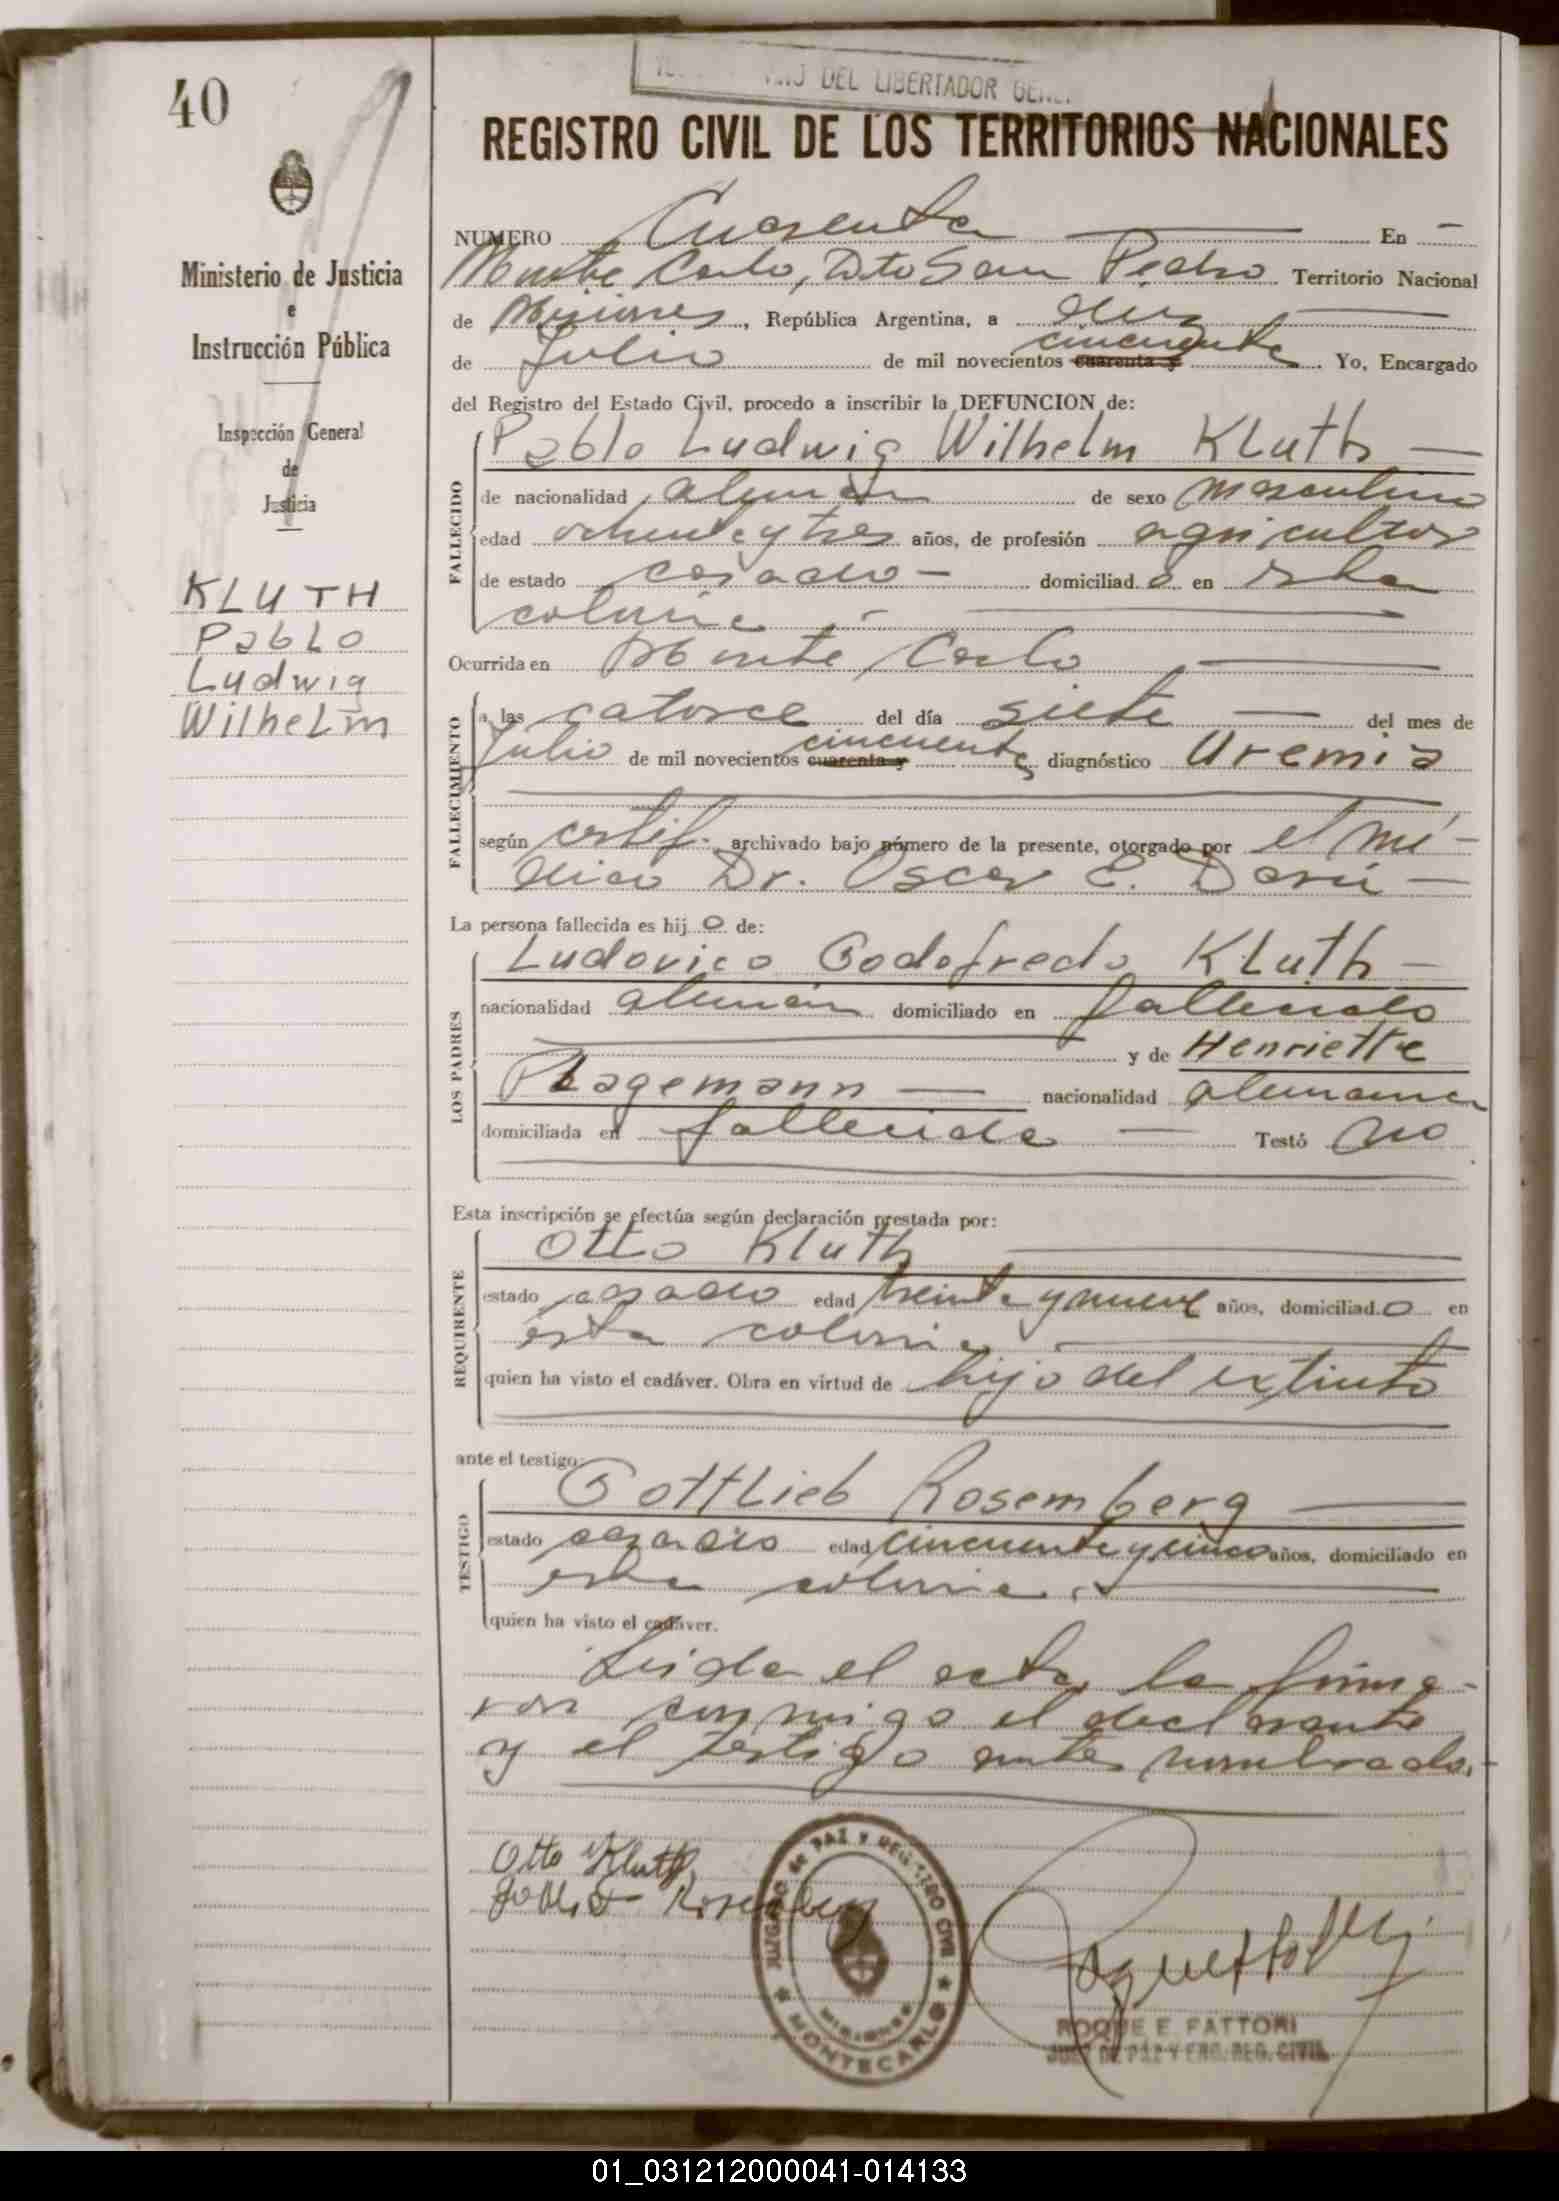 40
DEL LIBERTADOR GENE
REGISTRO CIVIL DE LOS TERRITORIOS NACIONALES
Ministerio de Justicia
e
Instrucción Pública
Inspección General
de
Justicia
KLUTH
Pablo
Ludwig
Wilhelm
NUMERO Cuarenta En
Monte Carlo, Dto San Pedro Territorio Nacional
de Misiones, República Argentina, a diez
cincuenta
de Julio de mil novecientos cuarenta y Yo, Encargado
del Registro del Estado Civil, procedo a inscribir la DEFUNCION de:
FALLECIDO
Pablo Ludwig Wilhelm Kluth
de nacionalidad alemán de sexo masculino
edad ochenta y tres años, de profesión agricultor
de estado casado domiciliad o en esta
colonia
Ocurrida en Monte Carlo
FALLECIMIENTO
a las catorce del día siete del mes de
cincuenta
Julio de mil novecientos cuarenta y diagnóstico Uremia
según certif. archivado bajo número de la presente, otorgado por el mé-
dico Dr. Oscar E. Darú
La persona fallecida es hij o de:
LOS PADRES
Ludovico Godofredo Kluth
nacionalidad alemán domiciliado en fallecido
y de Henriette
Plagemann nacionalidad alemana
domiciliada en fallecida Testó no
Esta inscripción se efectúa según declaración prestada por:
REQUIRENTE
Otto Kluth
estado casado edad treinta y nueve años, domiciliad o en
esta colonia
quien ha visto el cadáver. Obra en virtud de hijo del extinto
ante el testigo:
TESTIGO
Gottlieb Rosemberg
estado casado edad cincuenta y cinco años, domiciliado en
esta colonia.
quien ha visto el cadáver.
Leida el acta, la firma-
ron conmigo el declarante
y el testigo antes nombrado.-
Otto Kluth
Rosenberg
JUZGADO de PAZ Y REGISTRO CIVIL
MISIONES
MONTECARLO
ROQUE E. FATTORI
JUEZ DE PAZ Y ENC. REG. CIVIL
01_031212000041-014133